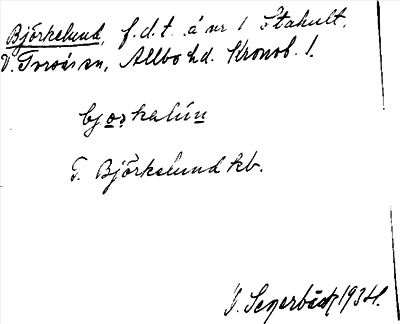 Björkelund, f.d.t. å nr 1 Stakult,
V. Torsås sn, Allbo hd. Kronob. l.
bjo̱rkalún
T. Björkelund kb.
J. Segerbäck 1934.